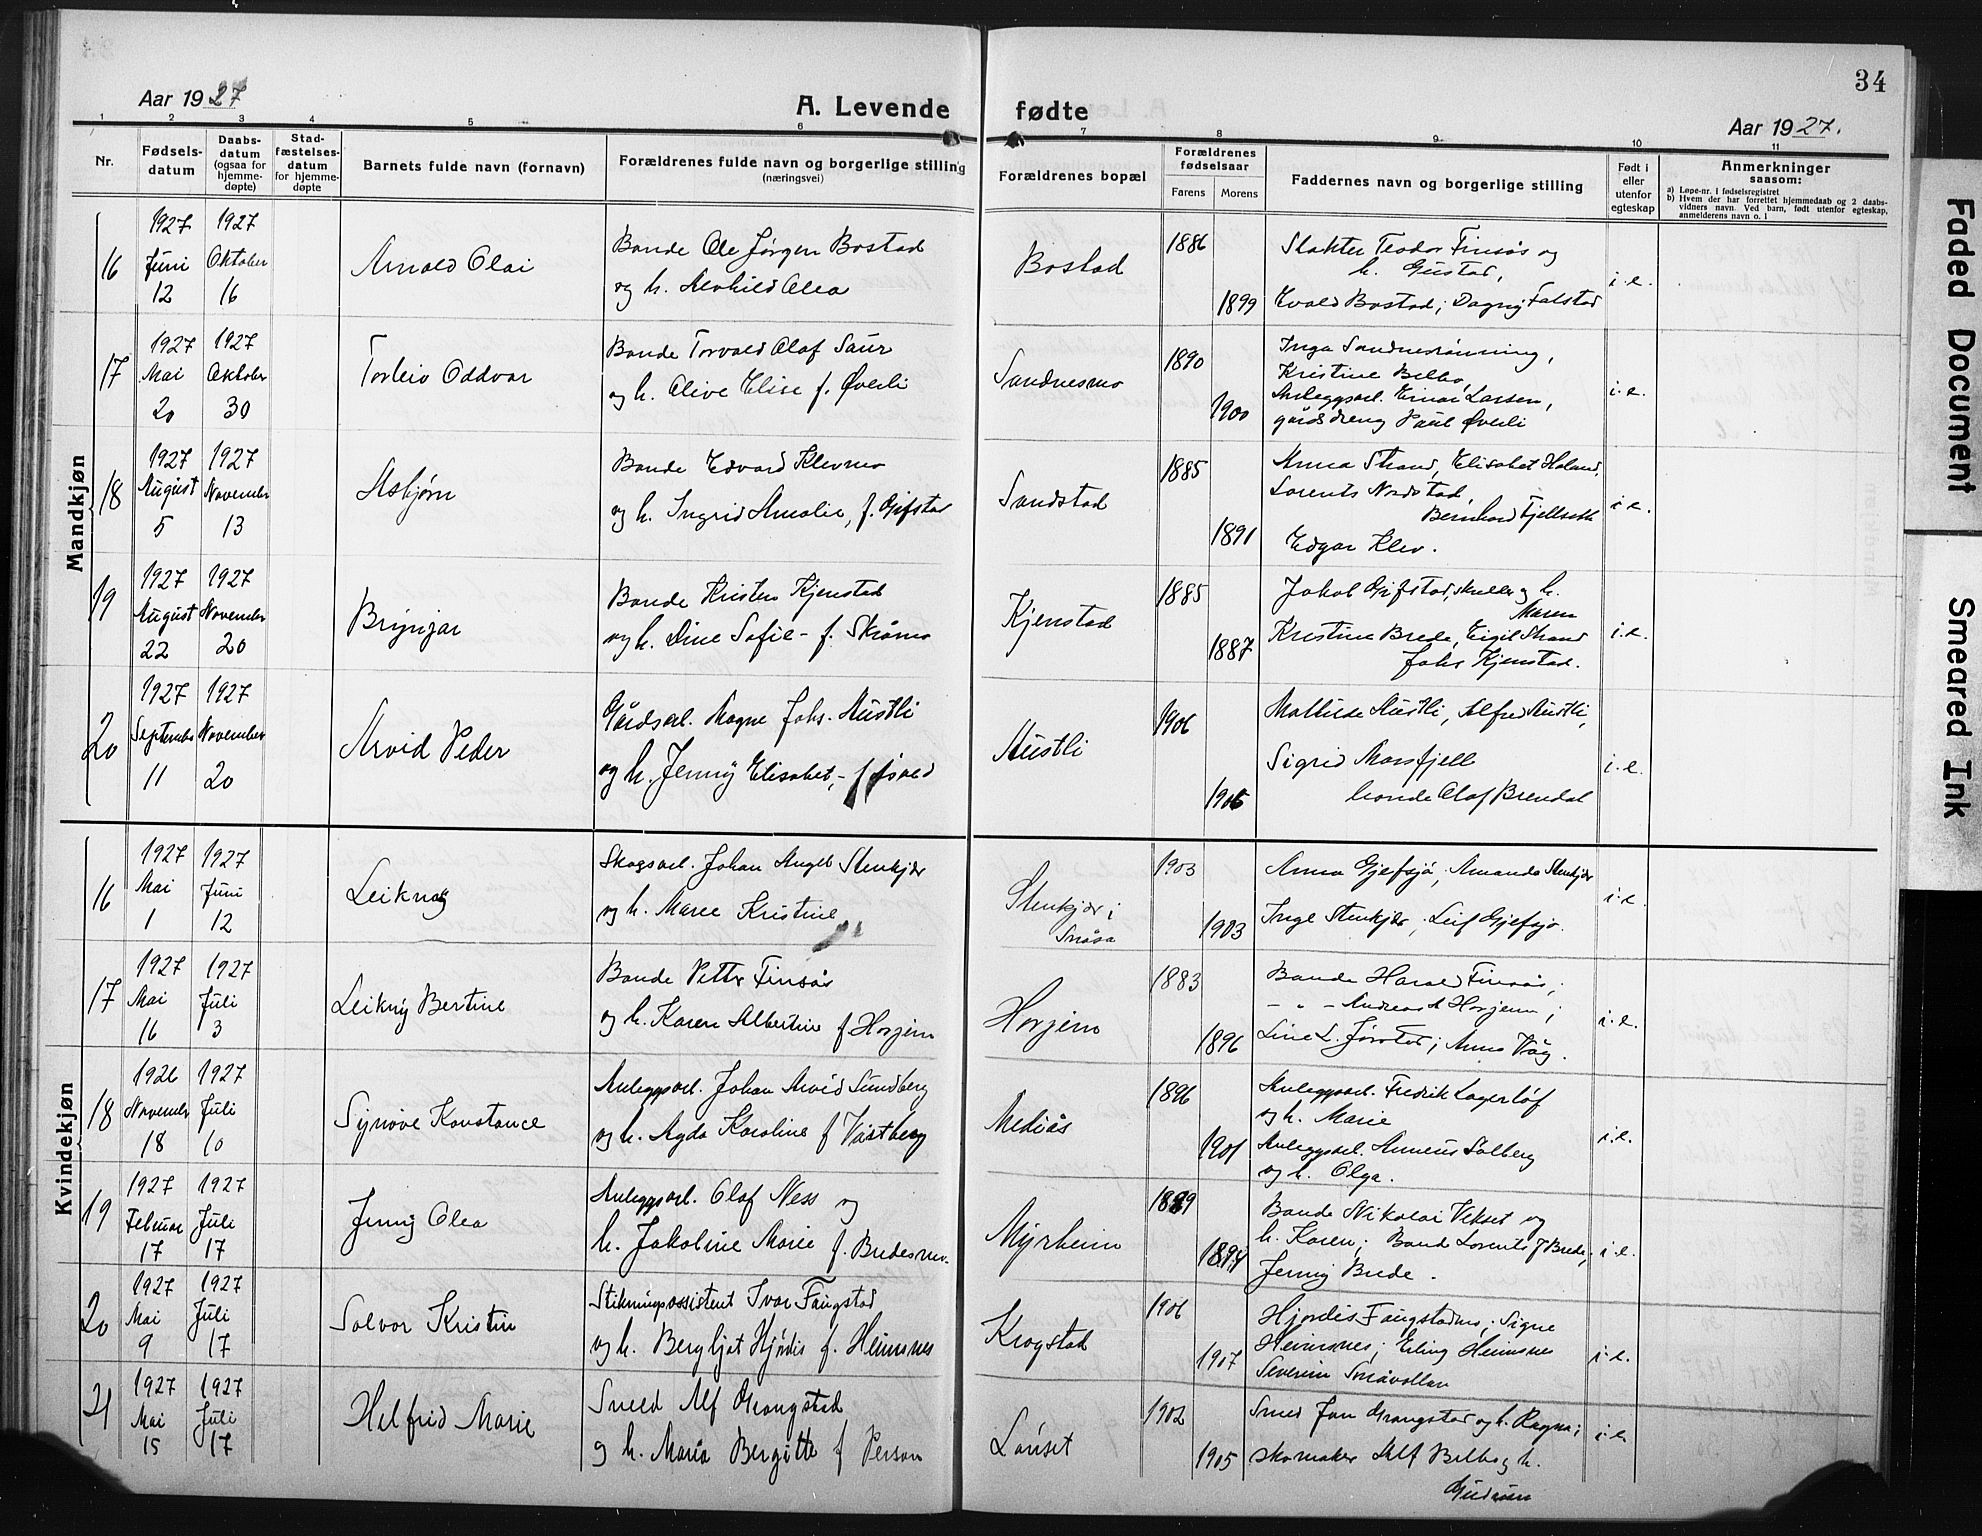 34
Aar 1927
A. Levende fødte
Aar 1927.
1 2 3 4 5 6 7 8 9 10 11
Nr.
Fødsels-
datum
Daabs-
datum
(ogsaa for
hjemme-
døpte)
Stad-
fæstelses-
datum
for hjemme-
døpte
Barnets fulde navn (fornavn)
Forældrenes fulde navn og borgerlige stilling
(næringsvei)
Forældrenes bopæl
Forældrenes
fødselsaar
Farens Morens
Faddernes navn og borgerlige stilling
Født i
eller
utenfor
egteskap
Anmerkninger
saasom:
a) Løpe-nr. i fødselsregistret
b) Hvem der har forrettet hjemmedaab og 2 daabs-
vidners navn. Ved barn, født utenfor egteskap,
anmelderens navn o. l
Mandkjøn
16
1927 Juni 12
1927 Oktober 16
Arnold Olai
Bonde Ole Jørgen Bostad
og h. Alvhild Olea
Bostad
1886
1899
Slakter Teodor Finsås og
h. Gustad,
Evald Bostad; Dagny Falstad
i. e.
17
1927 Mai 20
1927 Oktober 30
Torleiv Oddvar
Bonde Torvald Olaf Saur
og h. Olive Elise f. Øverli
Sandnesmo
1890
1900
Inga Sandnesrønning,
Kristine Belbo,
Anleggsarb. Einar Larsen,
gårdsdreng Paul Øverli
i. e.
18
1927 August 5
1927 November 13
Asbjørn
Bonde Edvard Klevmo
og h. Ingrid Amalie, f. Gifstad
Sandstad
1885
1891
Anna Strand, Elisabet Holand,
Lorents Nordstad,
Bernhard Fjellseth
Edgar Klev.
i. e.
19
1927 August 22
1927 November 20
Brynjar
Bonde Kristen Kjenstad
og h. Dine Sofie - f. Skråmo
Kjenstad
1885
1887
Jakob Gifstad, snekker og h.
Maren
Kristine Brede, Eigil Strand
Johs Kjenstad.
i. e.
20
1927 September 11
1927 November 20
Arvid Peder
Gårdsarb. Magne Johs. Austli
og h. Jenny Elisabet, - f.
Austli
1906
Mathilde Austli, Alfred Austli,
Sigrid Morsfjell
bonde Olaf Brendal
i. e.
Kvindekjøn
16
1927 Mai 1
1927 Juni 12
Leikny
Skogsarb. Johan Angel Stenkjær
og h. Marie Kristine
Stenkjær i
Snåsa
1903
1903
Anna Gjefsjø, Amanda Stenkjær
Inge Stenkjær, Leif Gjefsjø.
i. e.
17
1927 Mai 16
1927 Juli 3
Leikny Bertine
Bonde Petter Finsås
og h. Karen Albertine f Horjem
Horjem
1883
1896
Bonde Harald Finsås;
- " - Andreas A Horjem;
Line L. Jørstad; Anna Våg.
i. e.
18
1926 November 18
1927 Juli 10
Synove Konstance
Anleggsarb. Johan Arvid Sundberg
og h. Agda Karoline f Västberg
Mediås
1896
1901
Anleggsarb. Fredrik Lagerlöf
og h. Marie
Anleggsarb. Anneus Solberg
og h. Olga.
i. e.
19
1927 Februar 17
1927 Juli 17
Jenny Olea
Anleggsarb. Olaf Ness og
h. Jakobine Marie f. Bredesmo.
Myrheim
1889
1894
Bonde Nikolai Vekset og
h. Karen; Bonde Lorents J Brede;
Jenny Brede.
i. e.
20
1927 Mai 9
1927 Juli 17
Solvor Kristin
Stikningsassistent Ivar Faugstad
og h. Bergljot Hjørdis f. Heimsnes
Krogstad
1906
1907
Hjordis Faugstadmo; Signe
Heimsnes; Erling Heimsnes
Severin Småvollan
i. e.
21
1927 Mai 15
1927 Juli 17
Helfrid Marie
Smed Alf Grongstad
og h. Maria Bergitte f Person
Lønset
1902
1905
Smed Jon Grongstad og h. Ragna;
skomaker Alf Belbo og h.
Gudrun
i. e.
Faded Document
Smeared Ink